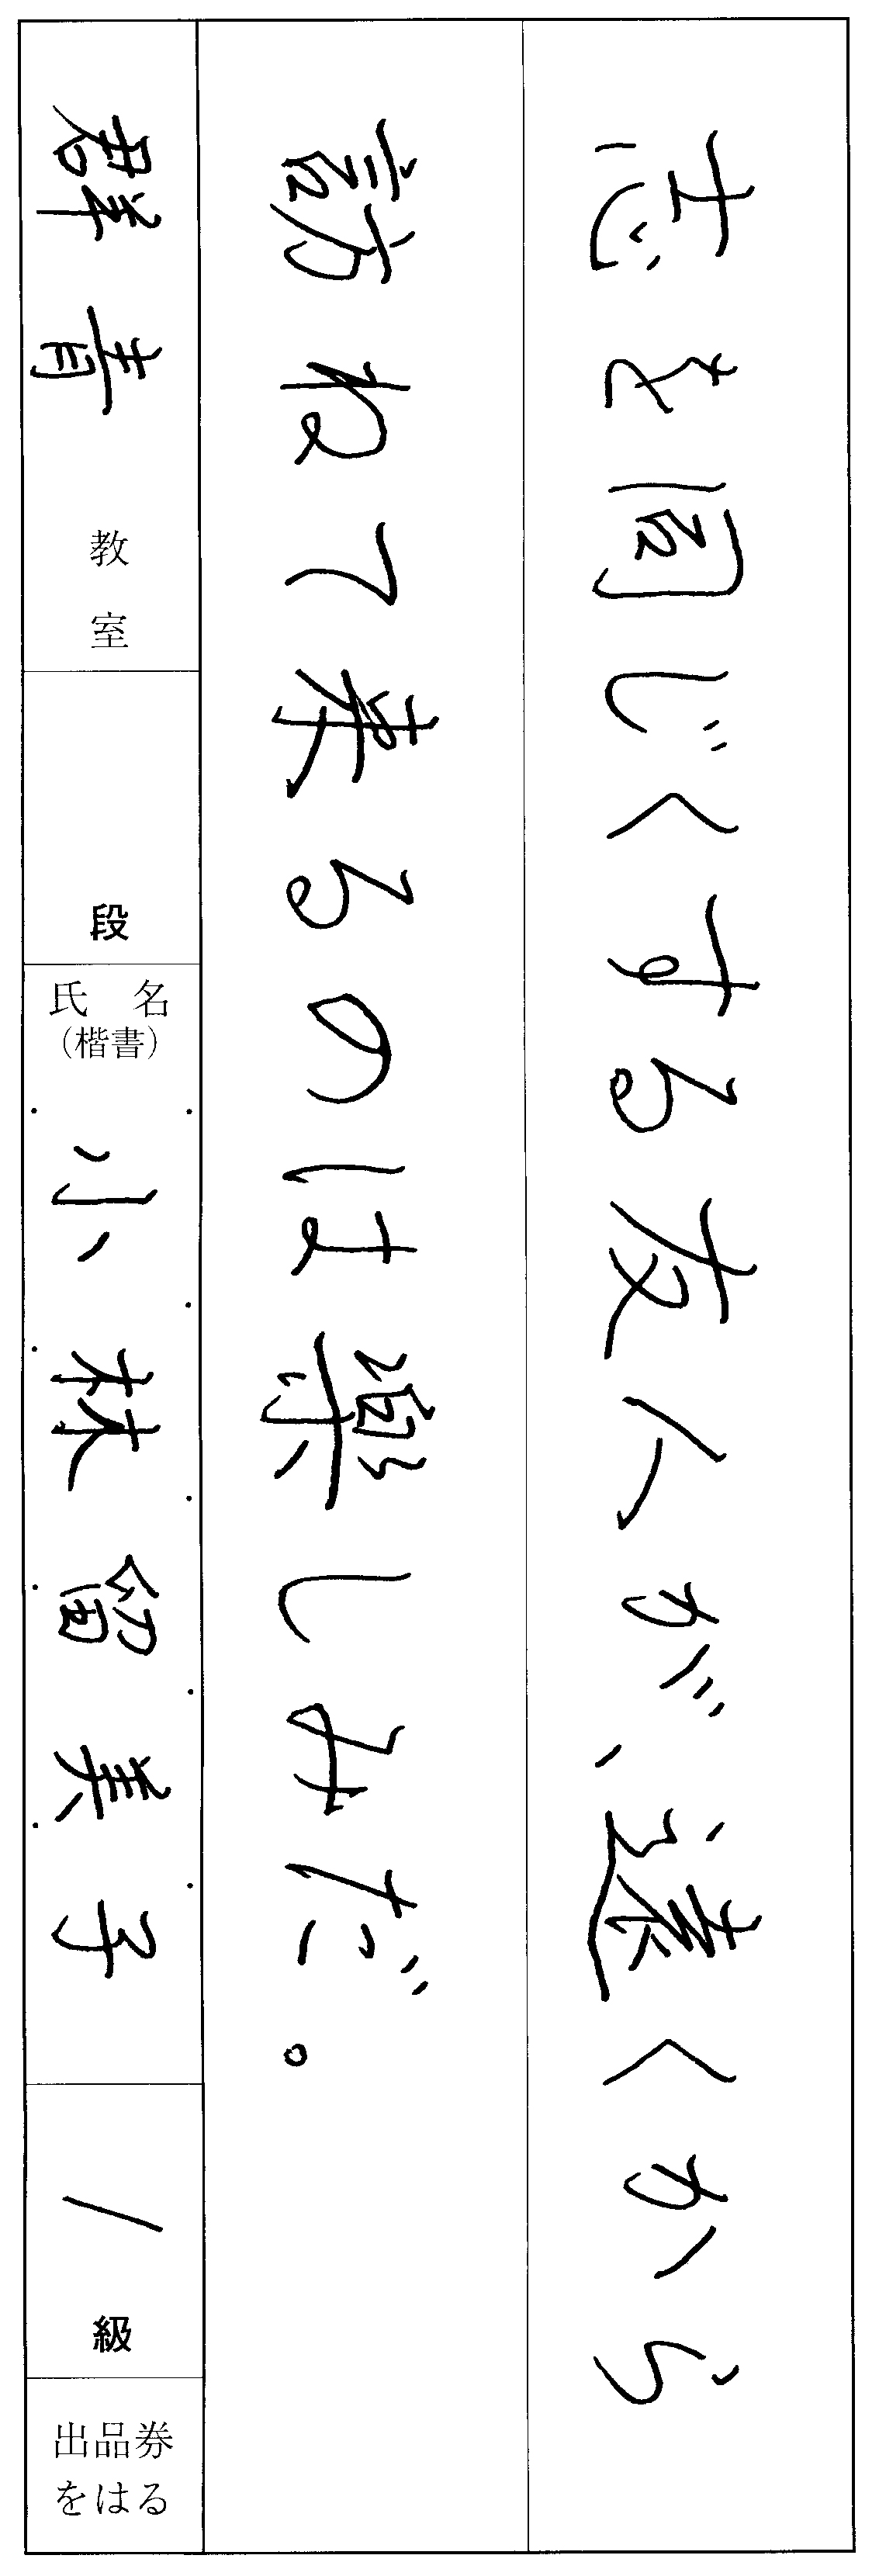 志を同じくする友人が、遠くから
訪ねて来るのは楽しみだ。
群青教室
段
氏名
(楷書)
小林留美子
1級
出品券
をはる